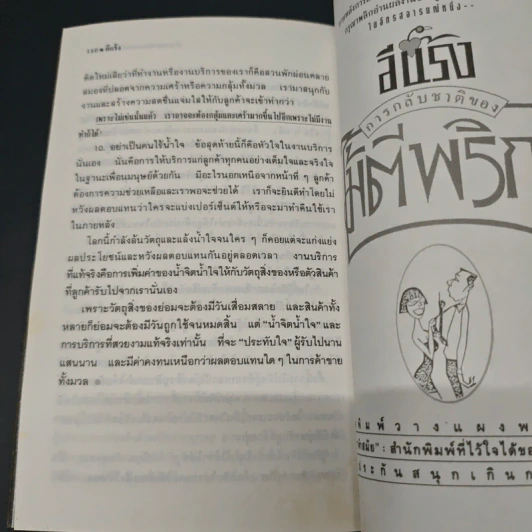 ๑๑๐ • อีแร้ง
คิดใหม่เสียว่าที่ทำงานหรืองานบริการของเราก็คือสวนพักผ่อนคลาย
สมองที่ปลอดจากความเคร้าหรือความกลุ้มทั้งมวล เรามาสนุกกับ
งานและสร้างความสดชื่นแจ่มใสให้กับลูกค้าจะเข้าท่ากว่า
เพราะไม่เช่นนั้นแล้ว เราอาจจะต้องกลุ้มและเคร้ามากขึ้นไปอีกเพราะไม่มีงาน
ทำก็ได้
๑๐. อย่าเป็นคนไร้น้ำใจ ข้อสุดท้ายนี้ก็คือหัวใจในงานบริการ
นั่นเอง นั่นคือการให้บริการแก่ลูกค้าทุกคนอย่างเต็มใจและจริงใจ
ในฐานะเพื่อนมนุษย์ด้วยกัน มีอะไรนอกเหนือจากหน้าที่ ๆ ลูกค้า
ต้องการความช่วยเหลือและเราพอจะช่วยได้ เราก็จะยินดีทำโดยไม่
หวังผลตอบแทนว่าใครจะแบ่งเปอร์เซ็นต์ให้หรือจะมาทำคืนใช้เรา
ในภายหลัง
โลกนี้กำลังล้นวัตถุและแล้งน้ำใจจนใคร ๆ ก็คอยแต่จะแก่งแย่ง
ผลประโยชน์และหวังผลตอบแทนกันอยู่ตลอดเวลา งานบริการ
ที่แท้จริงคือการเพิ่มค่าของน้ำจิตน้ำใจให้กับวัตถุสิ่งของหรือตัวสินค้า
ที่ลูกค้ารับไปจากเรานั่นเอง
เพราะวัตถุสิ่งของย่อมจะต้องมีวันเสื่อมสลาย และสินค้าทั้ง
หลายก็ย่อมจะต้องมีวันถูกใช้จนหมดสิ้น แต่ "น้ำจิตน้ำใจ" และ
การบริการที่สวยงามแท้จริงเท่านั้น ที่จะ "ประทับใจ" ผู้รับไปนาน
แสนนาน และมีค่าคงทนเหนือกว่าผลตอบแทนใด ๆ ในการค้าขาย
ทั้งมวล
อีแร้ง
การกลับชาติของ
มิตีพริก
พิมพ์วางแผงพ
สำนักพิมพ์ที่ไว้ใจได้ข
ประกันสนุกเกินก